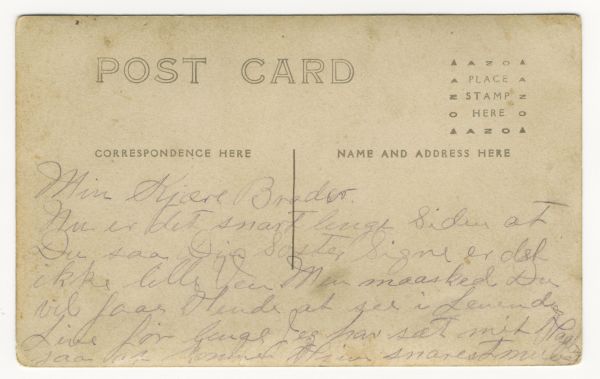 POST CARD
AZO
PLACE
STAMP
HERE
AZO
CORRESPONDENCE HERE
NAME AND ADDRESS HERE
Min Kjære Broder.
Nu er det snart lenge Siden at
Du saa Din Søster Signe er det
ikke lille Ven Men maaskee Du
vil faae Hende at see i Levende
Live før lenge jeg har sat mit
saa at snarest